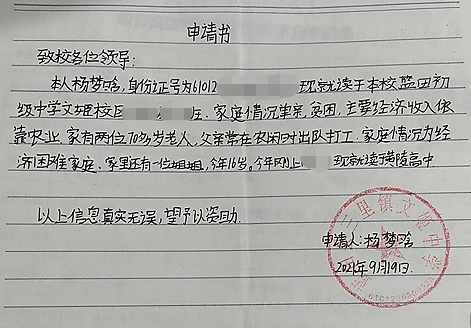 申请书
致校各位领导:
本人杨梦晗,身份证号为61012 现就读于本校蓝田初
级中学文理校区 左。家庭情况单亲,贫困,主要经济收入依
靠农业,家有两位70多岁老人,父亲常在农闲时出队打工,家庭情况为经
济困难家庭。家里还有一位姐姐,今年16岁。今年刚上 现就读于黄陵高中
以上信息真实无误,望予以资助。
申请人:杨梦晗
2021年9月19日.
三里镇文